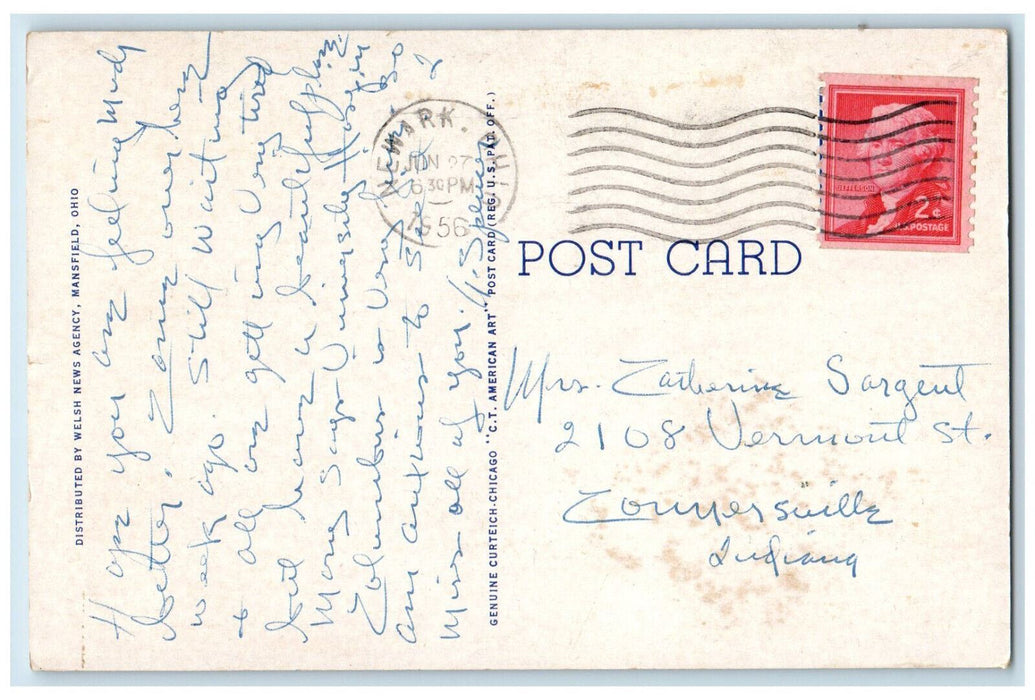 DISTRIBUTED BY WELSH NEWS AGENCY, MANSFIELD, OHIO
Hope you are feeling much
better. Came over here
week ago. Still waiting
& all are getting very tired
but have a beautiful place
Mary says University Hosp in
Columbus is very
am anxious to go
Miss all of you.
GENUINE CURTEICH-CHICAGO "C.T. AMERICAN ART" POST CARD (REG. U.S. PAT. OFF.)
NEWARK.
JUN 27
6 30 PM
1956
JEFFERSON
2¢
U.S. POSTAGE
POST CARD
Mrs. Catherine Sargent
2108 Vermont St.
Connersville
Indiana